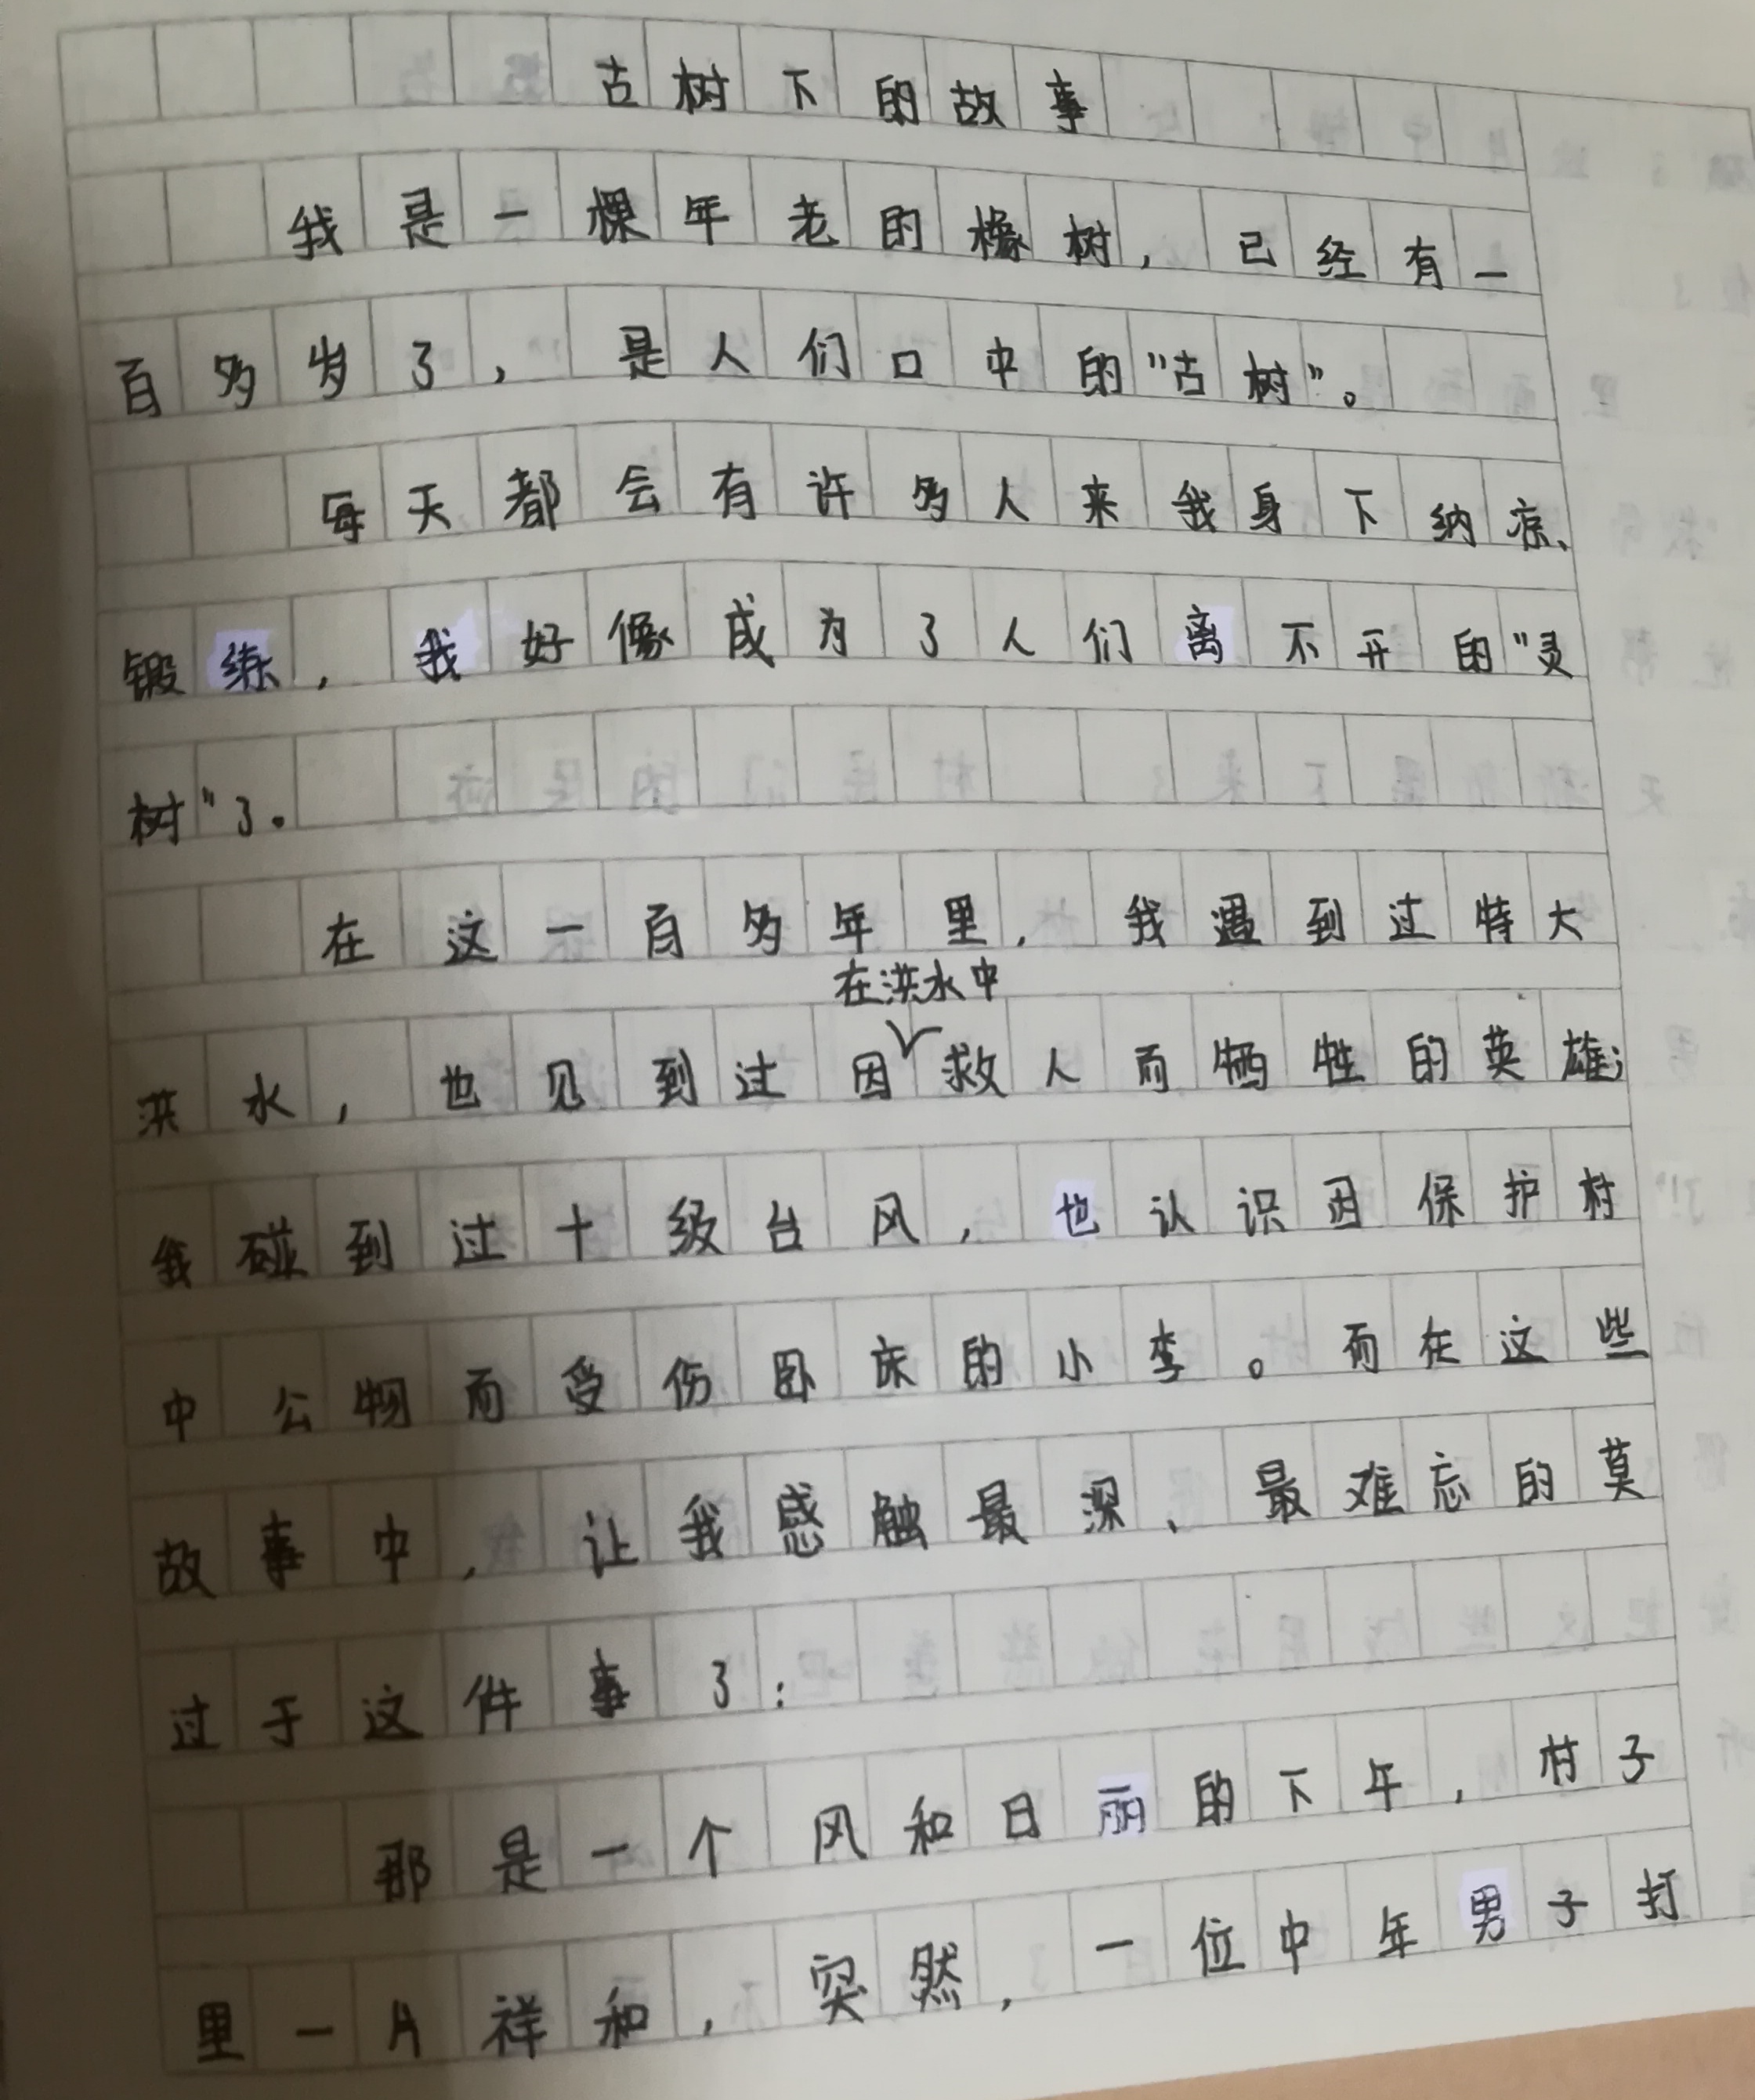 古树下的故事
我是一棵年老的橡树，已经有一
百多岁了，是人们口中的"古树"。
每天都会有许多人来我身下纳凉、
锻练，我好像成为了人们离不开的"灵
树"了。
在这一百多年里，我遇到过特大
在洪水中
洪水，也见到过因救人而牺牲的英雄；
我碰到过十级台风，也认识因保护村
中公物而受伤卧床的小李。而在这些
故事中，让我感触最深、最难忘的莫
过于这件事了：
那是一个风和日丽的下午，村子
里一片祥和，突然，一位中年男子打